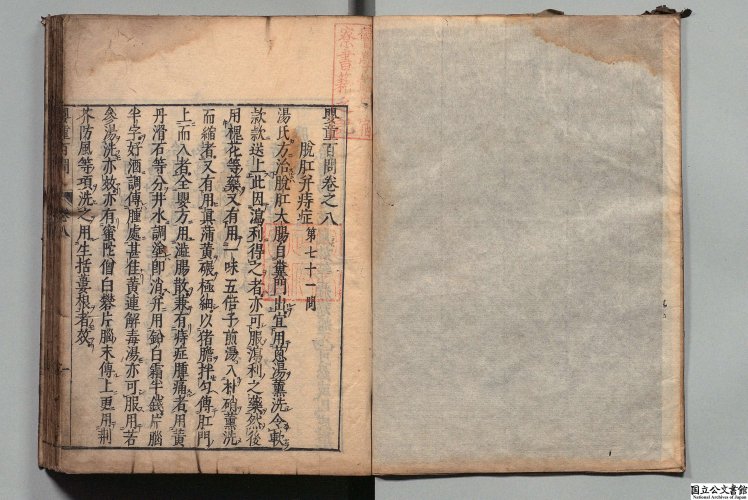 嬰童百問卷之八
脫肛并痔症 第七十一問
湯氏方治脫肛大腸自糞門出宜用葱湯薰洗令軟
款款送上此因瀉利得之者亦可服瀉利之藥然後
用槐花等藥又有用一味五倍子煎湯入朴硝薰洗
而縮者又有用眞蒲黄碾極細以猪膽拌勻傅肛門
上而入者全嬰方用澁腸散兼有痔症腫痛者用黄
丹滑石等分井水調塗卽消并用鉛白霜半錢片腦
半字好酒調傅腫處甚佳黄連解毒湯亦可服用若
參湯洗亦效亦有蜜陀僧白礬片腦末傅上更用荆
芥防風等項洗之用生括蔞根者效
嬰童百問 卷八 一
國立公文書館
National Archives of Japan